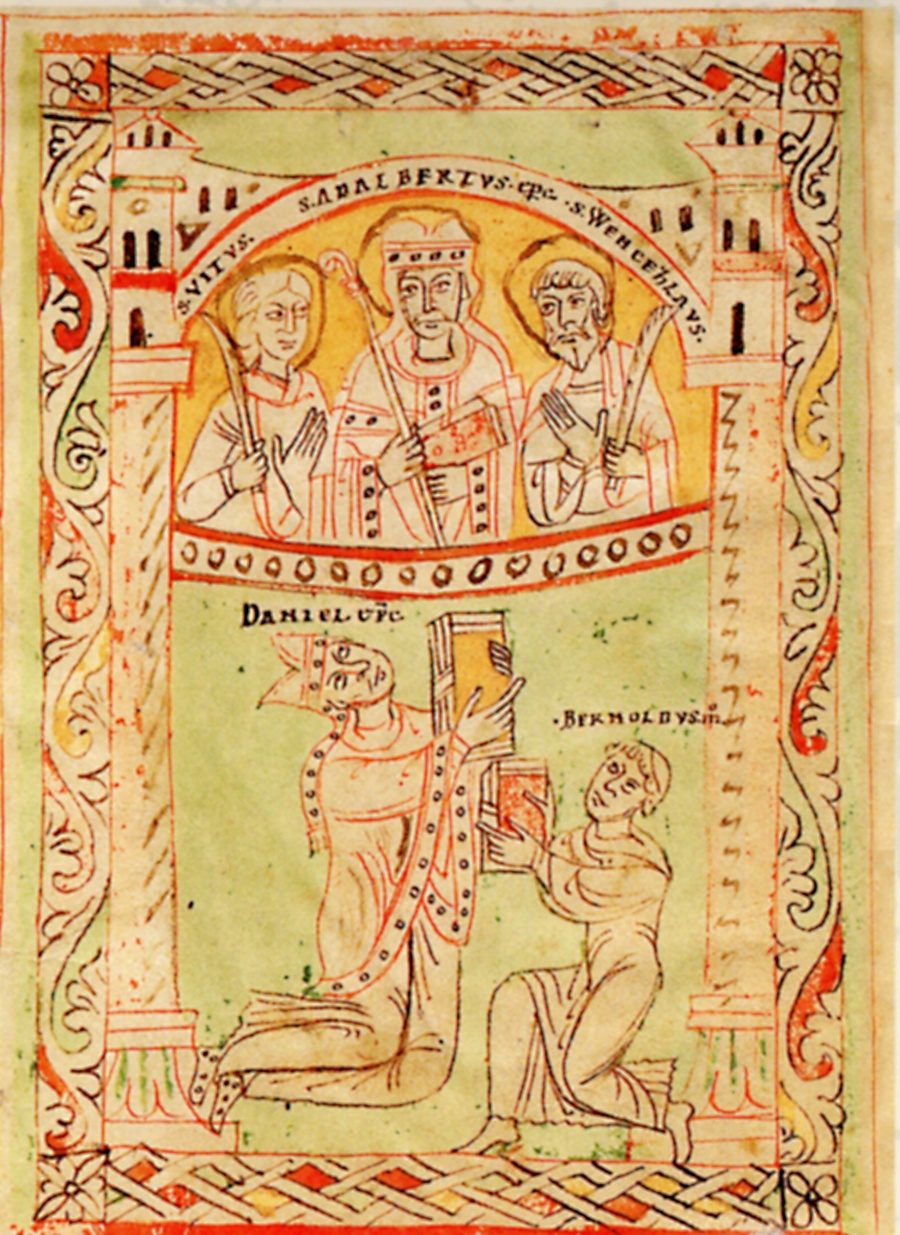 S. VITVS. S. ADALBERTVS. epc. S. WENCEZLAVS.
DANIEL EPC
. BERNOLDVS. m̅.